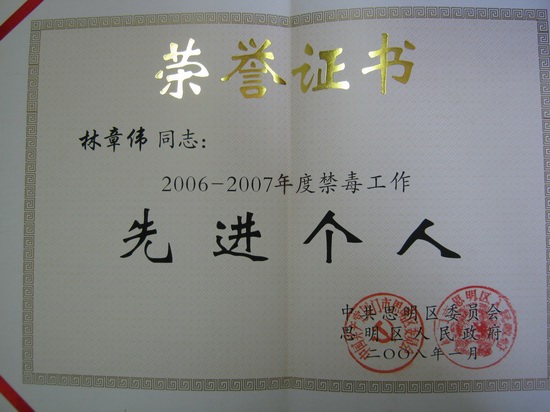 荣誉证书
林章伟 同志：
2006-2007年度禁毒工作
先进个人
中共思明区委员会
思明区人民政府
二〇〇八年一月